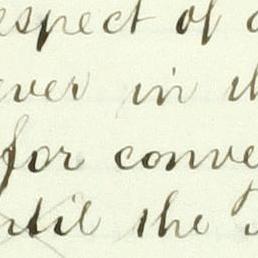 espect of
ever in th
for conve
ntil the